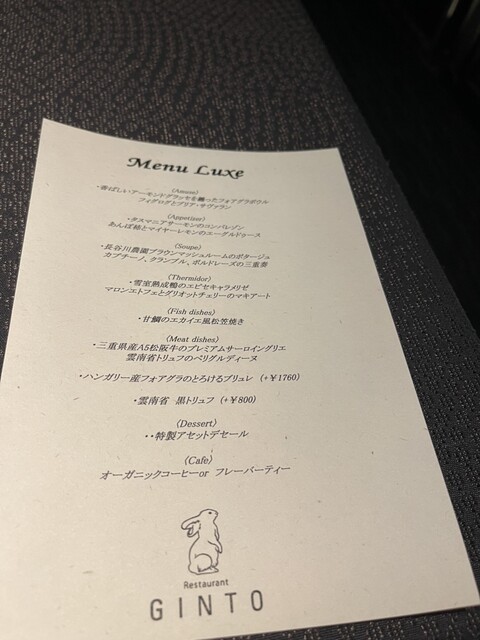 Menu Luxe
(Amuse)
・香ばしいアーモンドグラッセを纏ったフォアグラボウル
フィグログとブリア・サヴァラン
(Appetizer)
・タスマニアサーモンのコンパレゾン
あんぽ柿とマイヤーレモンのエーグルドゥース
(Soupe)
・長谷川農園ブラウンマッシュルームのポタージュ
カプチーノ、クランブル、ボルドレーズの三重奏
(Thermidor)
・雪室熟成鴨のエピセキャラメリゼ
マロンエトフェとグリオットチェリーのマキアート
(Fish dishes)
・甘鯛のエカイエ風松笠焼き
(Meat dishes)
・三重県産A5松阪牛のプレミアムサーロイングリエ
雲南省トリュフのペリグルディーヌ
・ハンガリー産フォアグラのとろけるブリュレ (+￥1760)
・雲南省 黒トリュフ (+￥800)
(Dessert)
・・特製アセットデセール
(Cafe)
オーガニックコーヒーor フレーバーティー
Restaurant
GINTO